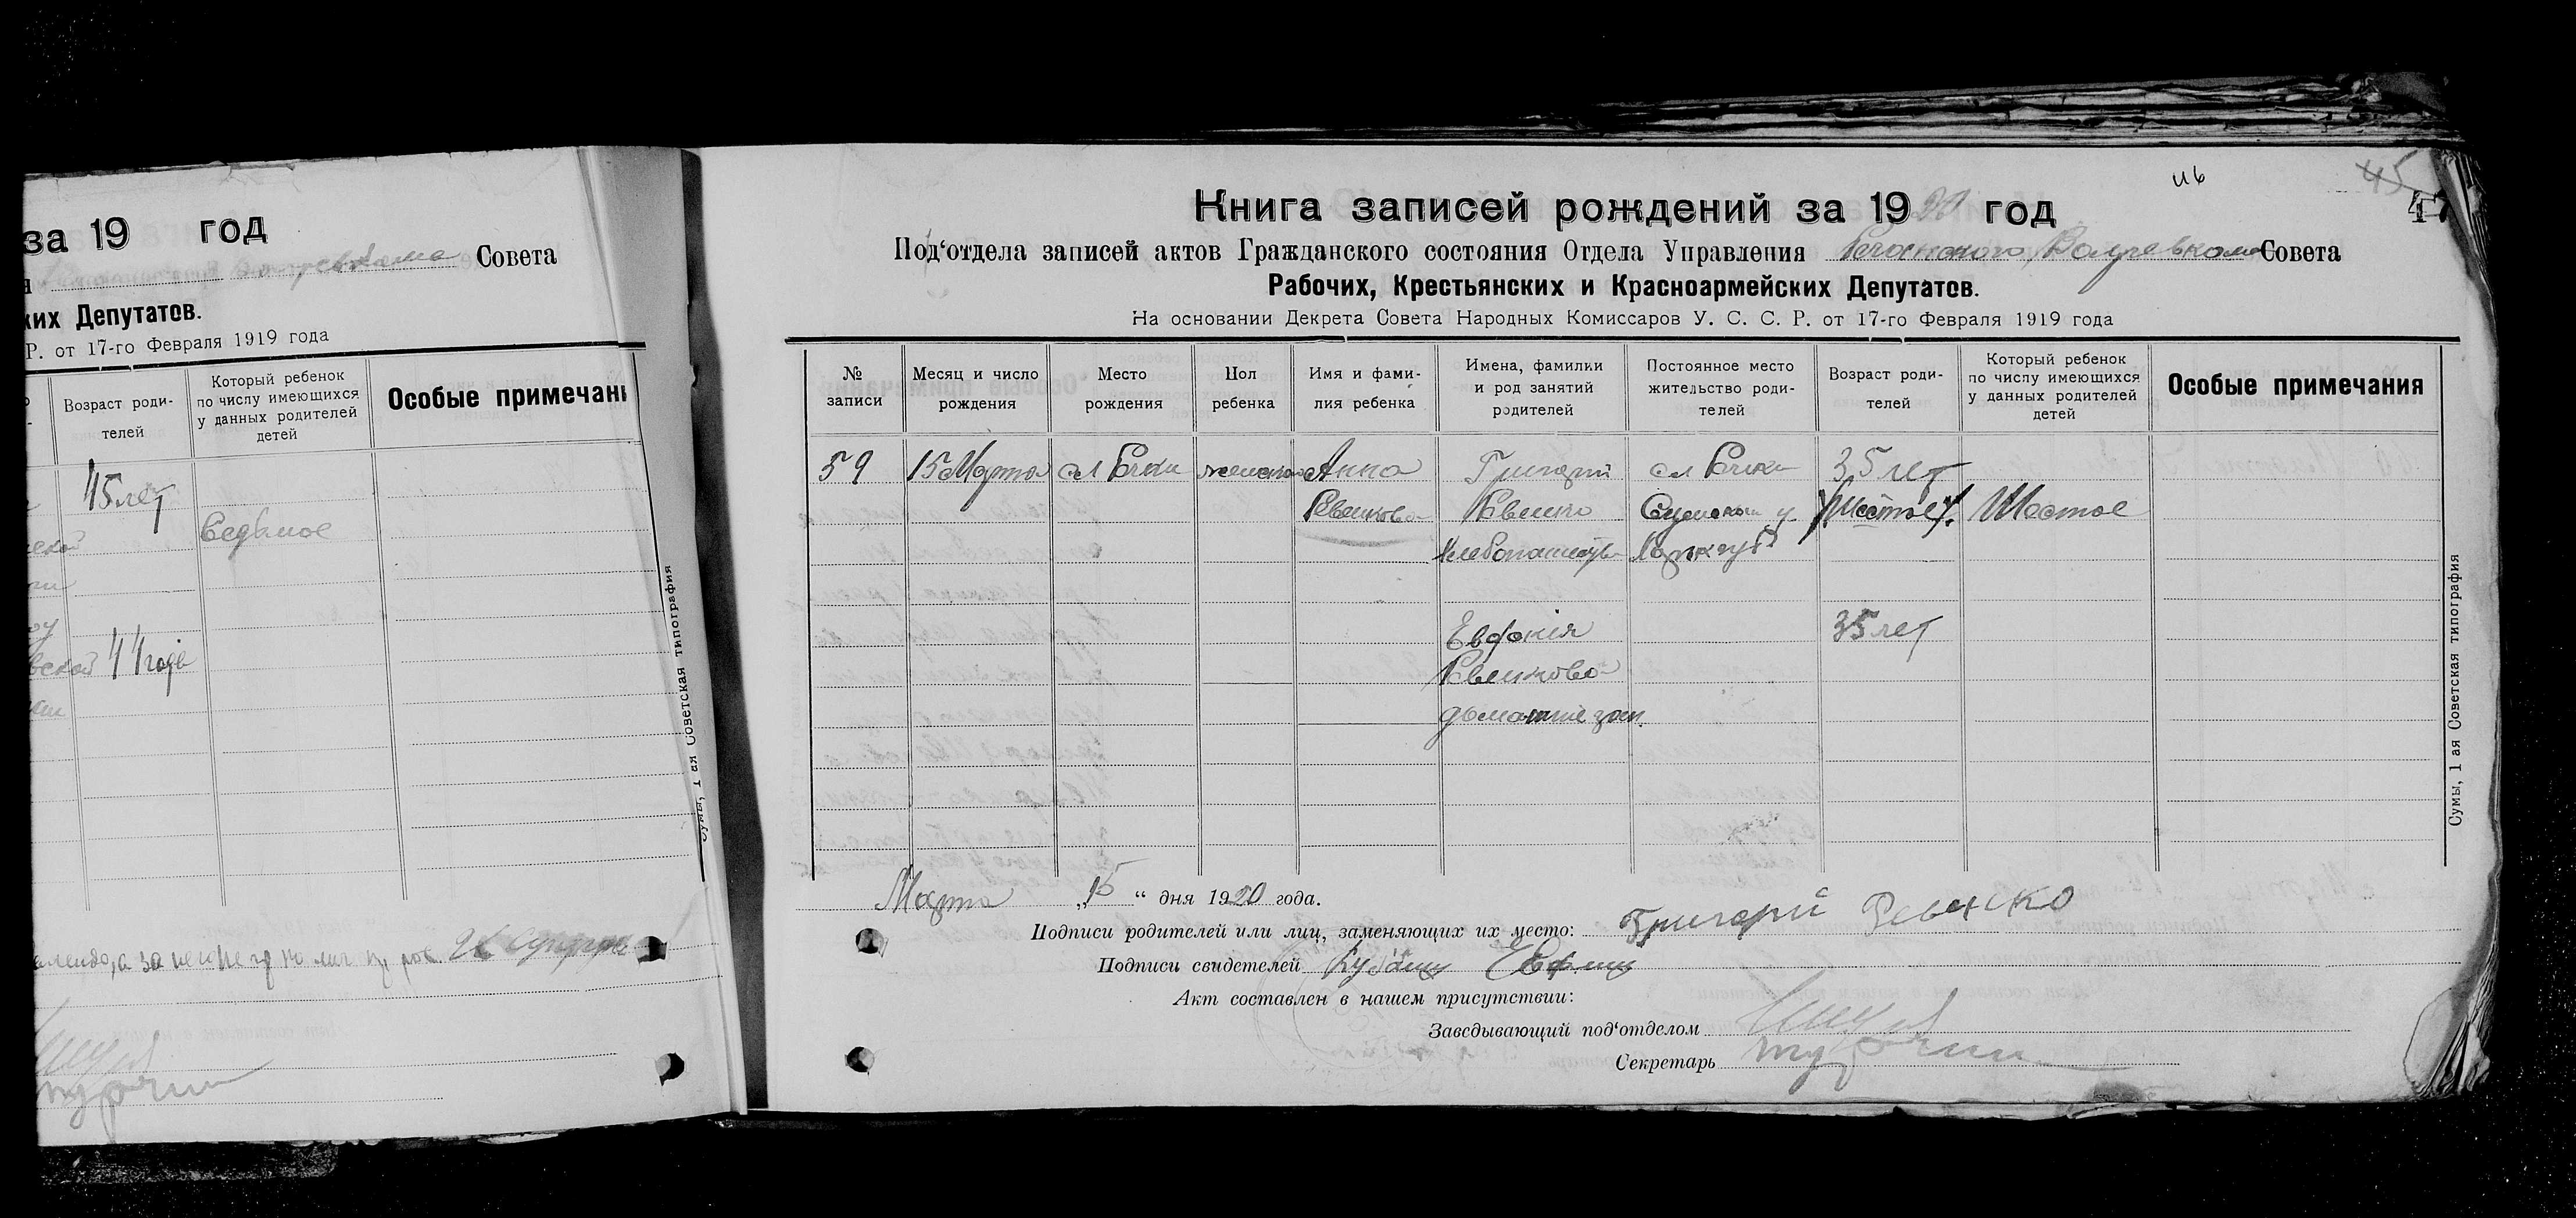 за 19 год
Совета
ких Депутатов.
Р. от 17-го Февраля 1919 года
Возраст роди-
телей
Который ребенок
по числу имеющихся
у данных родителей
детей
Особые примечани
45 лет
Седьмое
44 года
Сумы, 1 ая Советская типография
46
45
Книга записей рождений за 1920 год
Под‘отдела записей актов Гражданского состояния Отдела Управления Речанского Волревкома Совета
Рабочих, Крестьянских и Красноармейских Депутатов.
На основании Декрета Совета Народных Комиссаров У. С. С. Р. от 17-го Февраля 1919 года
№
записи
Месяц и число
рождения
Место
рождения
Пол
ребенка
Имя и фами-
лия ребенка
Имена, фамилки
и род занятий
родителей
Постоянное место
жительство роди-
телей
Возраст роди-
телей
Который ребенок
по числу имеющихся
у данных родителей
детей
Особые примечания
59 15 Марта сл Речки женского Анна Григорий сл Речки 35 лет
Ревенкова Ревенко Сумской у Шестое
Хлебопашество Харьк губ
Евдокія 35 лет
Ревенкова
домашніе зан.
Сумы, 1 ая Советская типография
Марта „15“ дня 1920 года.
Подписи родителей или лиц, заменяющих их место: Григорий Ревенко
Подписи свидетелей
Акт составлен в нашем присутствии:
Заведывающий под‘отделом
Секретарь